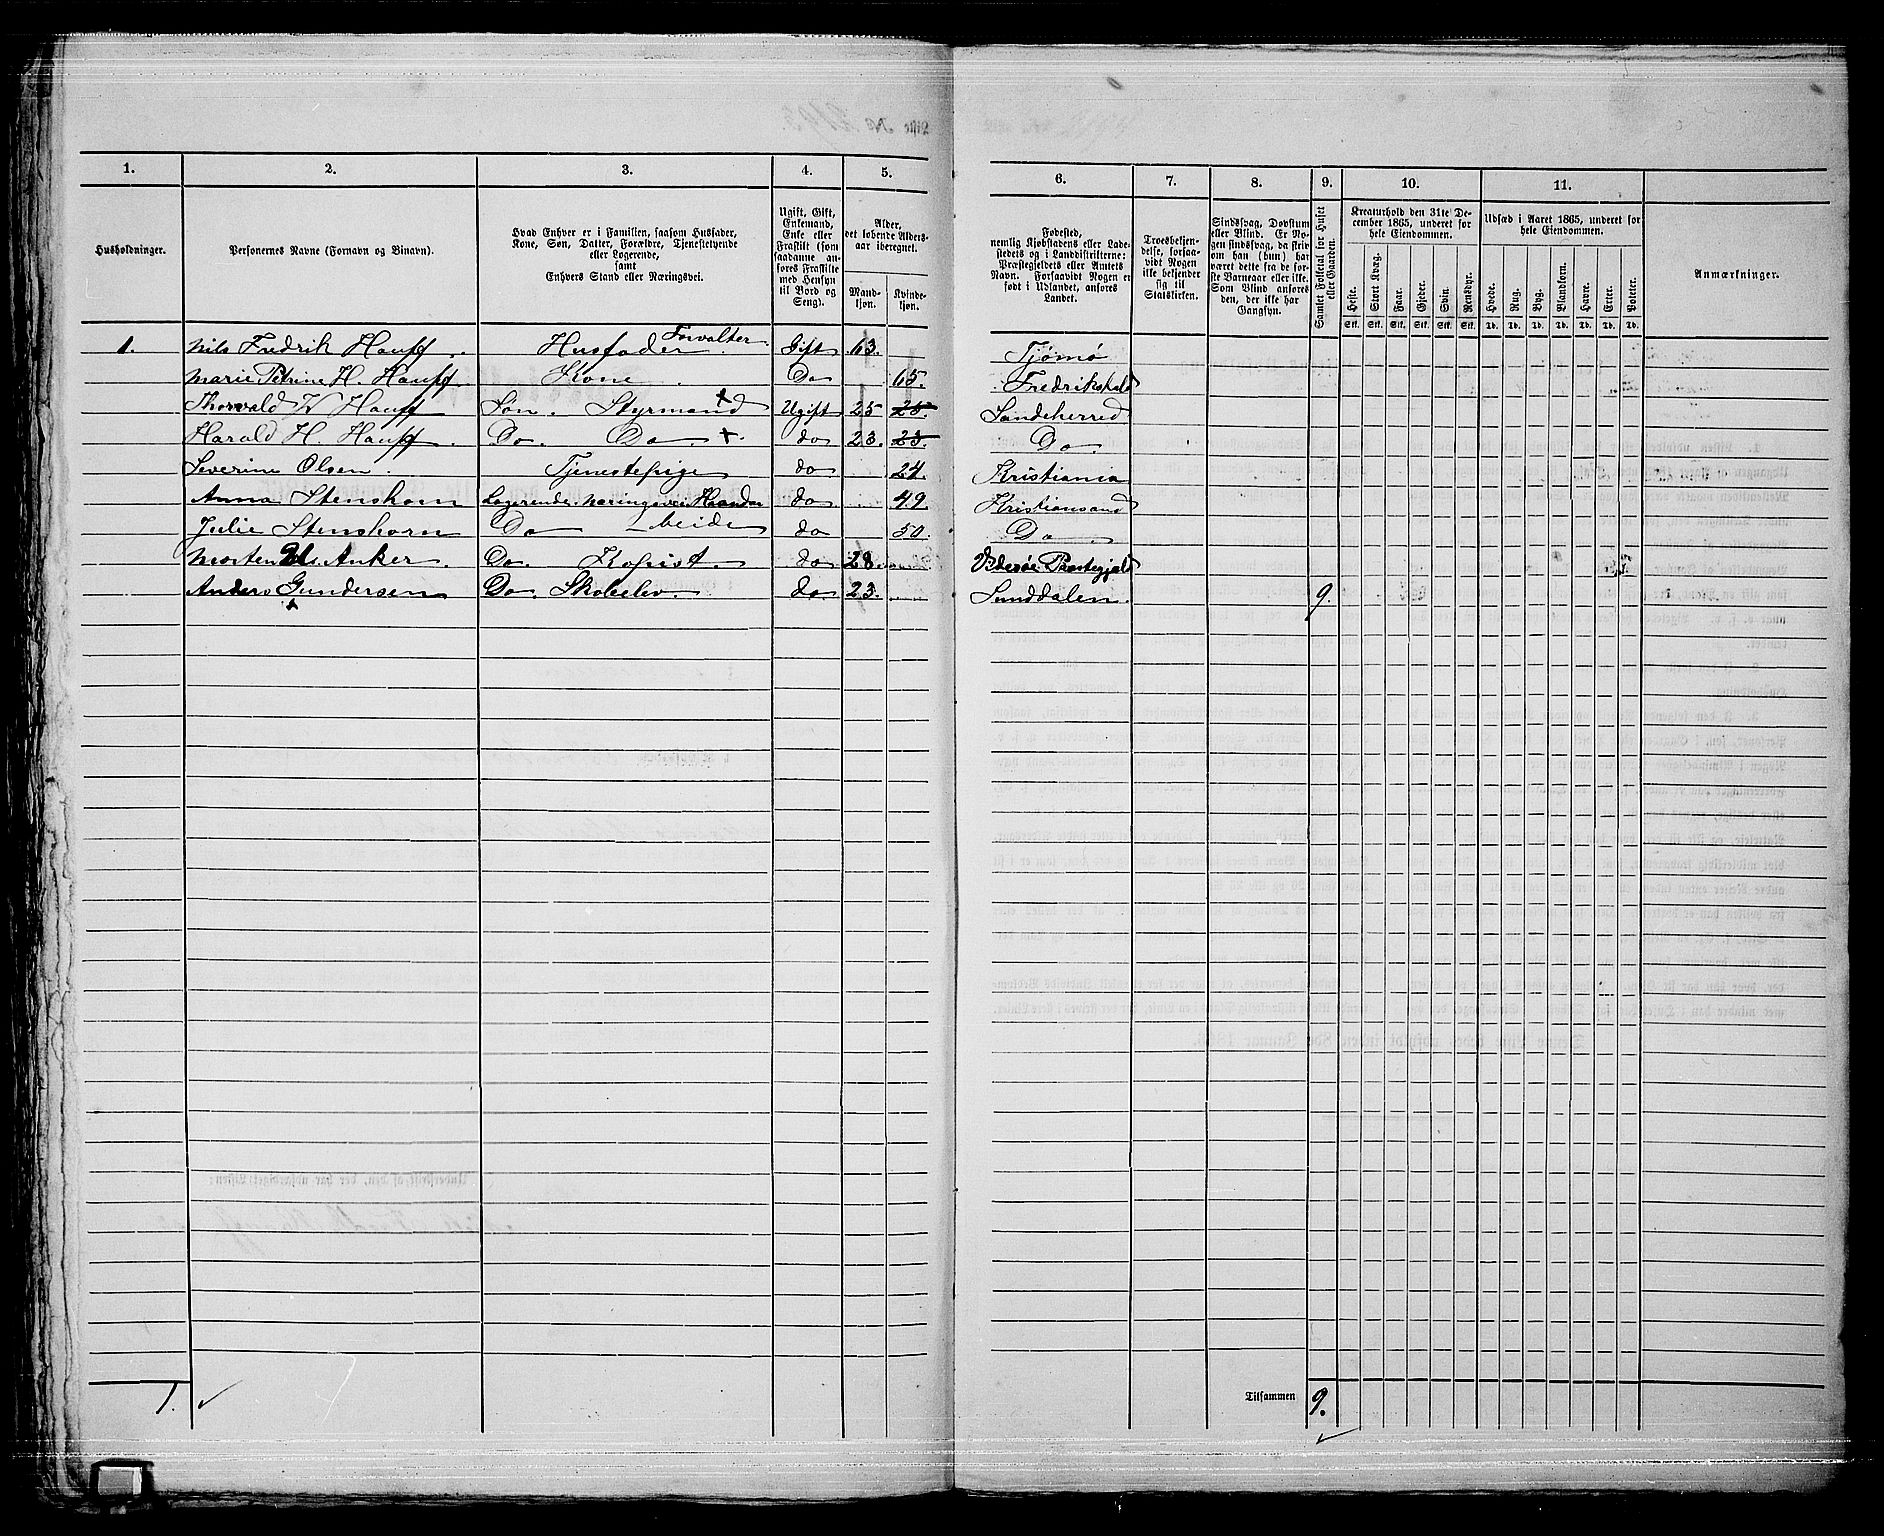 1. 2. 3. 4. 5. 6. 7. 8. 9. 10. 11.
Husholdninger.
Personernes Navne (Fornavn og Binavn).
Hvad Enhver er i Familien, saasom Husfader,
Kone, Søn, Datter, Forældre, Tjenestetyende
eller Logerende,
samt
Enhvers Stand eller Næringsvei.
Ugift, Gift,
Enkemand,
Enke eller
Fraskilt (som
saadanne an-
føres Fraskilte
med Hensyn
til Bord og
Seng).
Alder,
det løbende Alders-
aar iberegnet.
Mand-
kjøn.
Kvinde-
kjøn.
Fødested,
nemlig Kjøbstadens eller Lade-
stedets og i Landdistrikterne:
Præstegjeldets eller Amtets
Navn. Forsaavidt Nogen er
født i Udlandet, anføres
Landet.
Troesbekjen-
delse, forsaa-
vidt Nogen
ikke bekjender
sig til
Statskirken.
Sindssvag, Døvstum
eller Blind. Er No-
gen sindssvag, da skriv
om han (hun) har
været dette fra de før-
ste Barneaar eller ikke.
Som Blind anføres
den, der ikke har
Gangsyn.
Samlet Folketal for Huset
eller Gaarden.
Kreaturhold den 31te De-
cember 1865, underet for
hele Eiendommen.
Heste. Stort Kvæg. Faar. Gjeder. Svin. Rensdyr.
Stk. Stk. Stk. Stk. Stk. Stk.
Udsæd i Aaret 1865, underet for
hele Eiendommen.
Hvede. Rug. Byg. Blandkorn. Havre. Erter. Poteter.
Td. Td. Td. Td. Td. Td. Td.
Anmærkninger.
1. Nils Fredrik Hauff. Husfader. Forvalter Gift 63. Tjømø
Marie Petrine H. Hauff. Kone Do 65. Fredrikshald
Thorvald W Hauff Søn. Styrmand + Ugift 25 25. Sandeherred
Harald H. Hauff. Do. Do + do 23. 23. Do
Severine Olsen. Tjenestepige do 24. Kristiania
Anna Stenshorn Logerende. Næringsvei Haandar do 49. Kristiansand
Julie Stenshorn Do beide do 50. Do
Morten Anker Do. Kopist. do 28. Præstegjæld
Anders Gundersen Do. Skoleelev. do. 23. Sunddalen. 9.
1. Tilsammen 9.